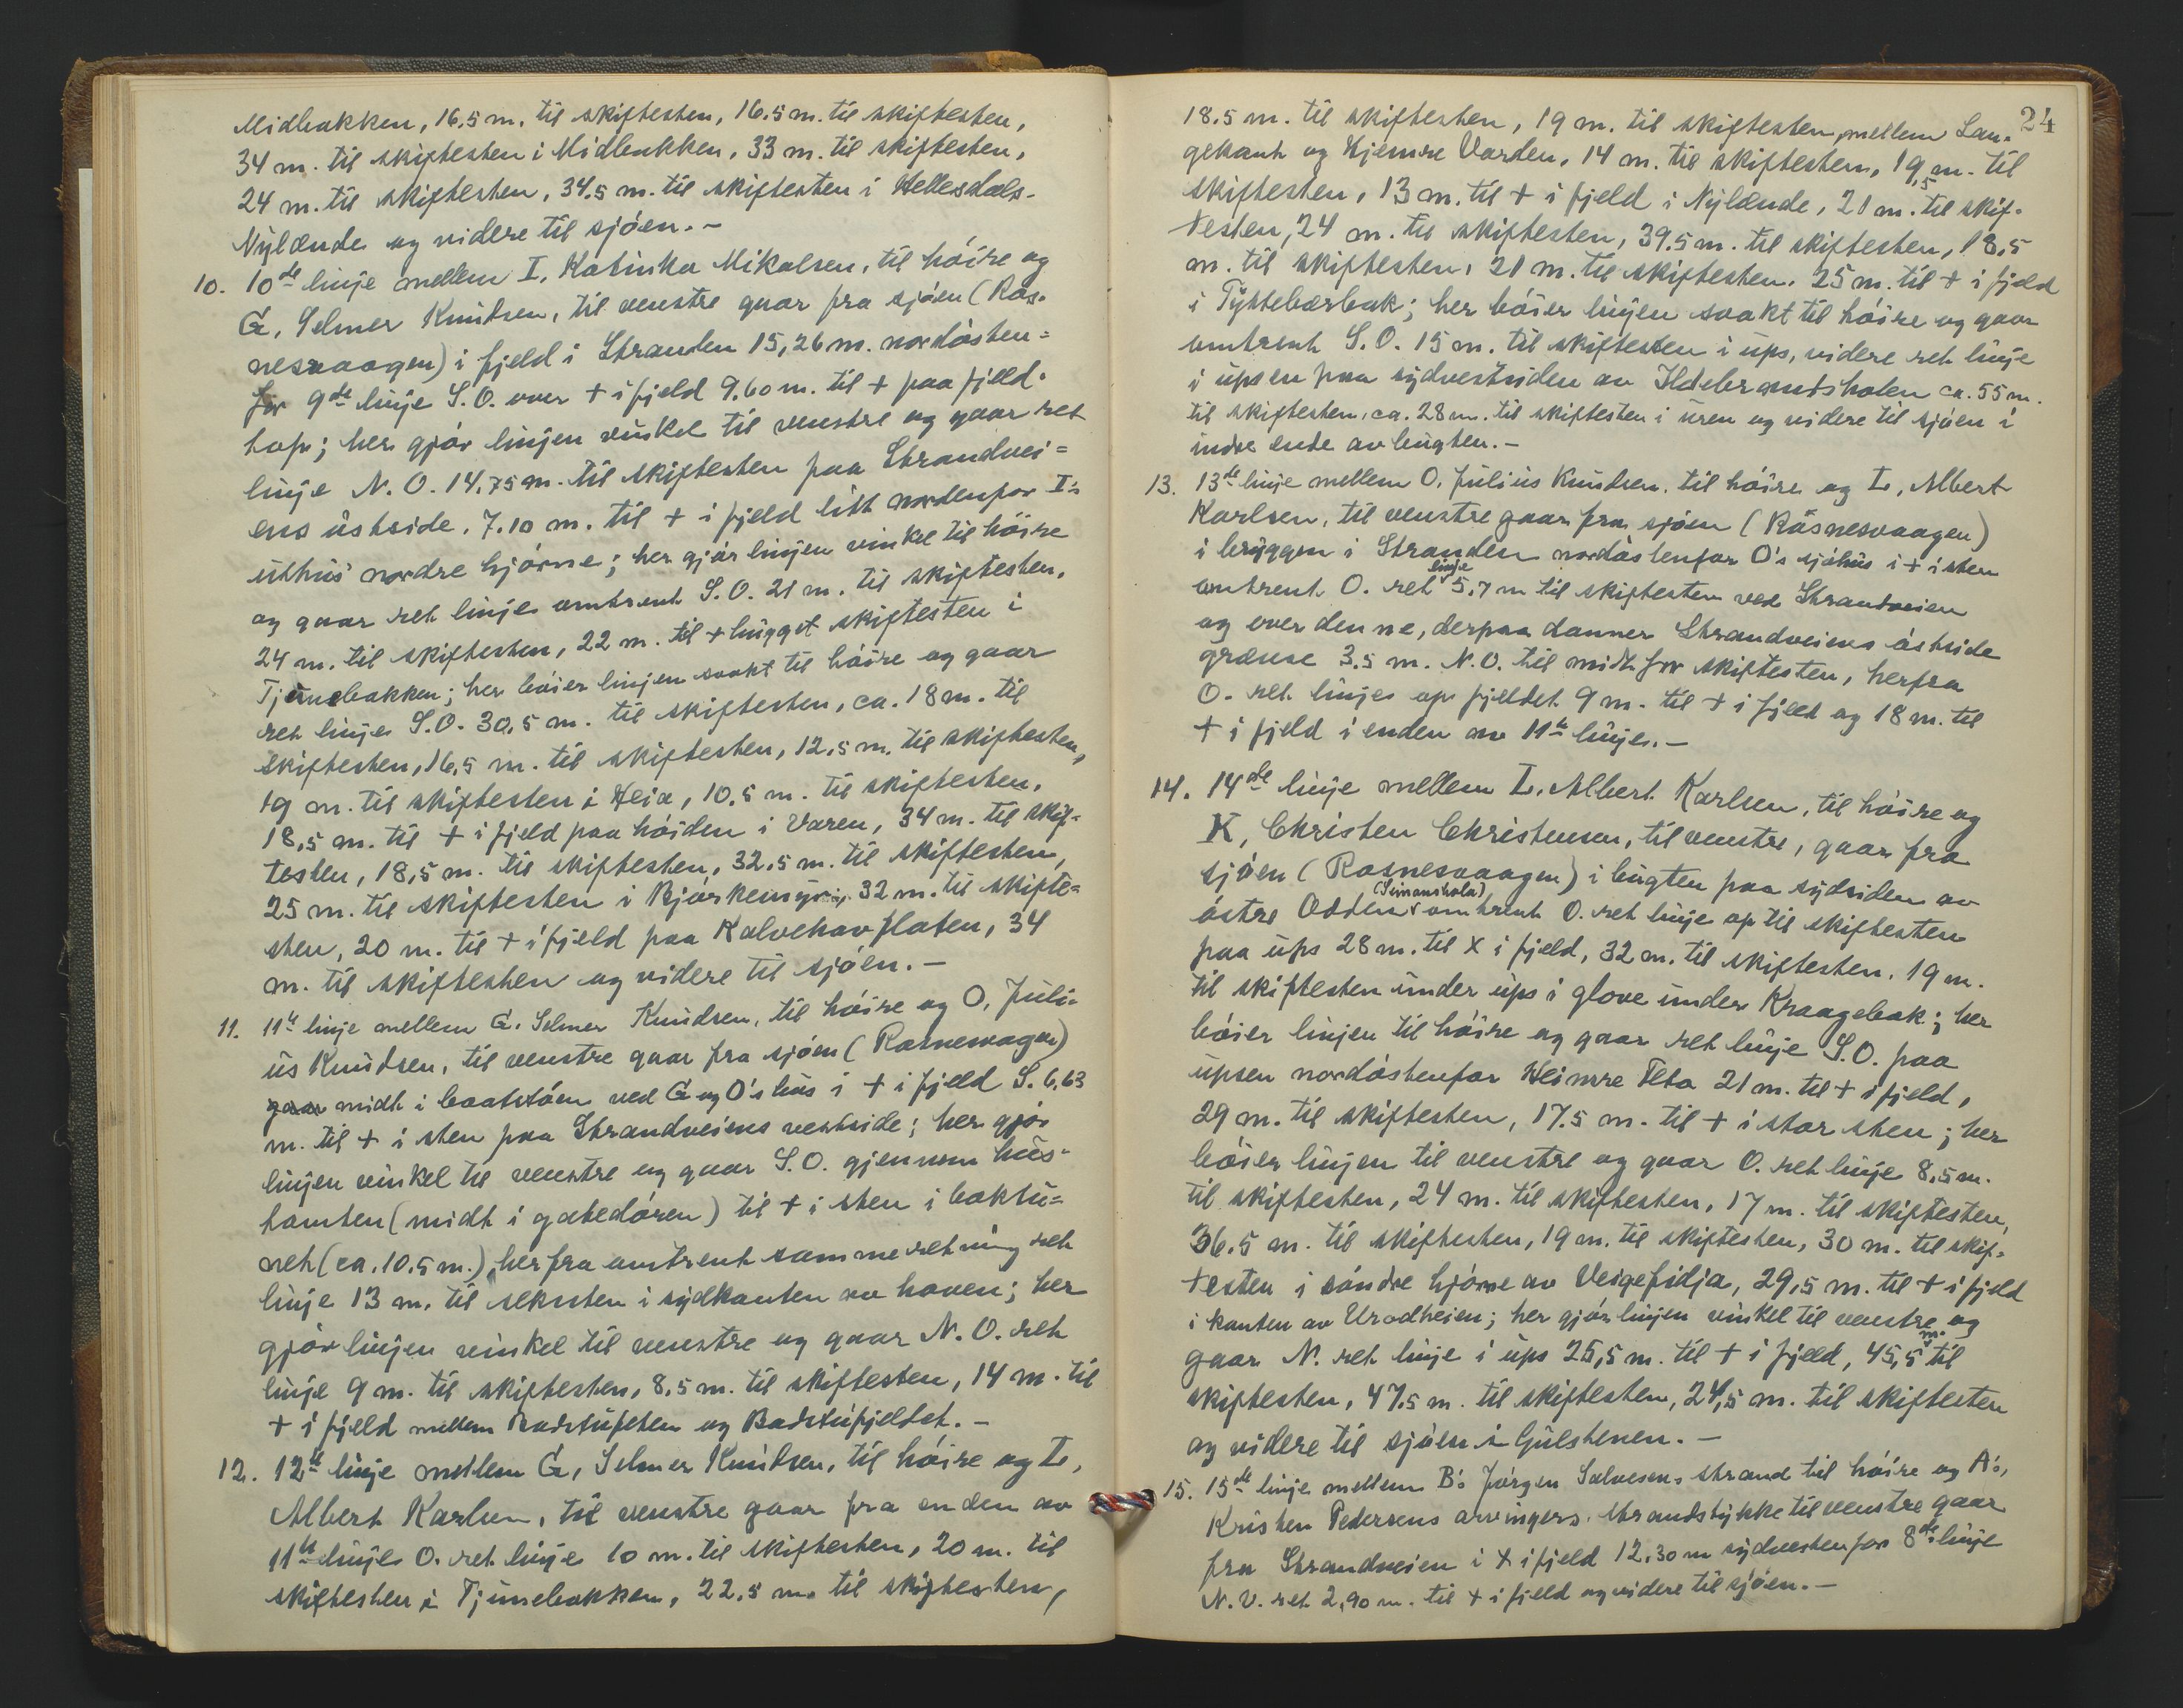 Midbakken, 16,5 m. til skiftesten, 16.5 m. til skiftesten,
34 m. til skiftesten i Midbakken, 33 m. til skiftesten,
24 m. til skiftesten, 34.5 m. til skiftesten i Hellesdals-
Nylænde og videre til sjøen. -
10. 10de linje mellem I, Katinka Mikalsen, til høire og
G, Selmer Knudsen, til venstre gaar fra sjøen (Ros-
nesvaagen) i fjeld i Stranden 15,26 m. nordøsten=
for 9de linje S.O. over + i fjeld 9.60 m. til + paa fjeld-
hop; her gjør linjen vinkel til venstre og gaar ret
linje N.O. 14,75 m. til skiftesten paa Strandvei=
ens østside. 7.10 m. til + i fjeld litt nordenfor I's
uthus' nordre hjørne; her gjør linjen vinkel til høire
og gaar ret linje omtrent S.O. 21 m. til skiftesten,
24 m. til skiftesten, 22 m. til + hugget skiftesten i
Tjunebakken; her bøier linjen svakt til høire og gaar
ret linje S.O. 30,5 m. til skiftesten, ca. 18 m. til
skiftesten, 16,5 m. til skiftesten, 12,5 m. til skiftesten,
19 m. til skiftesten i Heia, 10.5 m. til skiftesten,
18,5 m. til + i fjeld paa høiden i Varen, 34 m. til skif-
testen, 18,5 m. til skiftesten, 32,5 m. til skiftesten,
25 m. til skiftesten i Bjørkemyr, 32 m. til skifte=
sten, 20 m. til + i fjeld paa Kalvehavflaten, 34
m. til skiftesten og videre til sjøen. -
11. 11te linje mellem G. Selmer Knudsen, til høire og O, Juli-
us Knudsen, til venstre gaar fra sjøen (Rosnesvagen)
gaar midt i baatstøen ved G og O's hus i + i fjeld S. 6,63
m. til + i sten paa Strandveiens vestside; her gjør
linjen vinkel til venstre og gaar S.O. gjennem hus-
tomten (midt i gatedøren) til + i sten i baktu=
net (ca. 10.5 m.), herfra omtrent samme retning ret
linje 13 m. til seksten i sydkanten av haven; her
gjør linjen vinkel til venstre og gaar N.O. ret
linje 9 m. til skiftesten, 8,5 m. til skiftesten, 14 m. til
+ i fjeld mellem Badstufeten og Badstufjeldet. -
12. 12te linje mellem G, Selmer Knudsen, til høire og L,
Albert Karlsen, til venstre gaar fra enden av
11te linje O. ret linje 10 m. til skiftesten, 20 m. til
skiftesten i Tjunebakken, 22,5 m. til skiftesten,
24
18.5 m. til skiftesten, 19 m. til skiftesten, mellem Lan-
gekant og Hjemre Varden, 14 m. til skiftesten, 19,5 m. til
skiftesten, 13 m. til + i fjeld i Nylænde, 21 m. til skif-
testen, 24 m. til skiftesten, 39.5 m. til skiftesten, 18,5
m. til skiftesten, 21 m. til skiftesten. 25 m. til + i fjeld
i Tyttebærbak; her bøier linjen svakt til høire og gaar
omtrent S.O. 15 m. til skiftesten i ups, videre ret linje
i upsen paa sydvestsiden av Ildebrandsholen ca. 55 m.
til skiftesten, ca. 28 m. til skiftesten i uren og videre til sjøen i
indre ende av bugten. -
13. 13de linje mellem O, Julius Knudsen, til høire og L, Albert
Karlsen, til venstre gaar fra sjøen (Rosnesvaagen)
i bryggen i Stranden nordøstenfor O's sjøhus i + i sten
omtrent O. ret linje 5,7 m til skiftesten ved Strandveien
og over denne, derpaa danner Strandveiens østside
grænse 3.5 m. N.O. til midt for skiftesten, herfra
O. ret linje op fjeldet 9 m. til + i fjeld og 18 m. til
+ i fjeld i enden av 11te linje. -
14. 14de linje mellem L, Albert Karlsen, til høire og
K, Christen Christensen, til venstre, gaar fra
sjøen (Rosnesvaagen) i bugten paa sydsiden av
østre Odden (Simonshola) omtrent O. ret linje op til skiftesten
paa ups 28 m. til X i fjeld, 32 m. til skiftesten. 19 m.
til skiftesten under ups i glove under Kraagebak; her
bøier linjen til høire og gaar ret linje S.O. paa
upsen nordøstenfor Heimre Fleta 21 m. til + i fjeld,
29 m. til skiftesten, 17.5 m. til + i stor sten; her
bøier linjen til venstre og gaar O. ret linje 8,5 m.
til skiftesten, 24 m. til skiftesten, 17 m. til skiftesten,
36.5 m. til skiftesten, 19 m. til skiftesten, 30 m. til skif-
testen i søndre hjørne av Veigefidja, 29,5 m. til + i fjeld
i kanten av Urodheien; her gjør linjen vinkel til venstre og
gaar N. ret linje i ups 25,5 m. til + i fjeld, 45,5 m. til
skiftesten, 47.5 m. til skiftesten, 24,5 m. til skiftesten
og videre til sjøen i Gulstenen. -
15. 15de linje mellem B's Jørgen Salvesens strand til høire og A's,
Kristen Pedersens arvingers strandstykke til venstre gaar
fra Strandveien i + i fjeld 12,30 m sydvestenfor 8de linje
N.V. ret 2,90 m. til + i fjeld og videre til sjøen. -